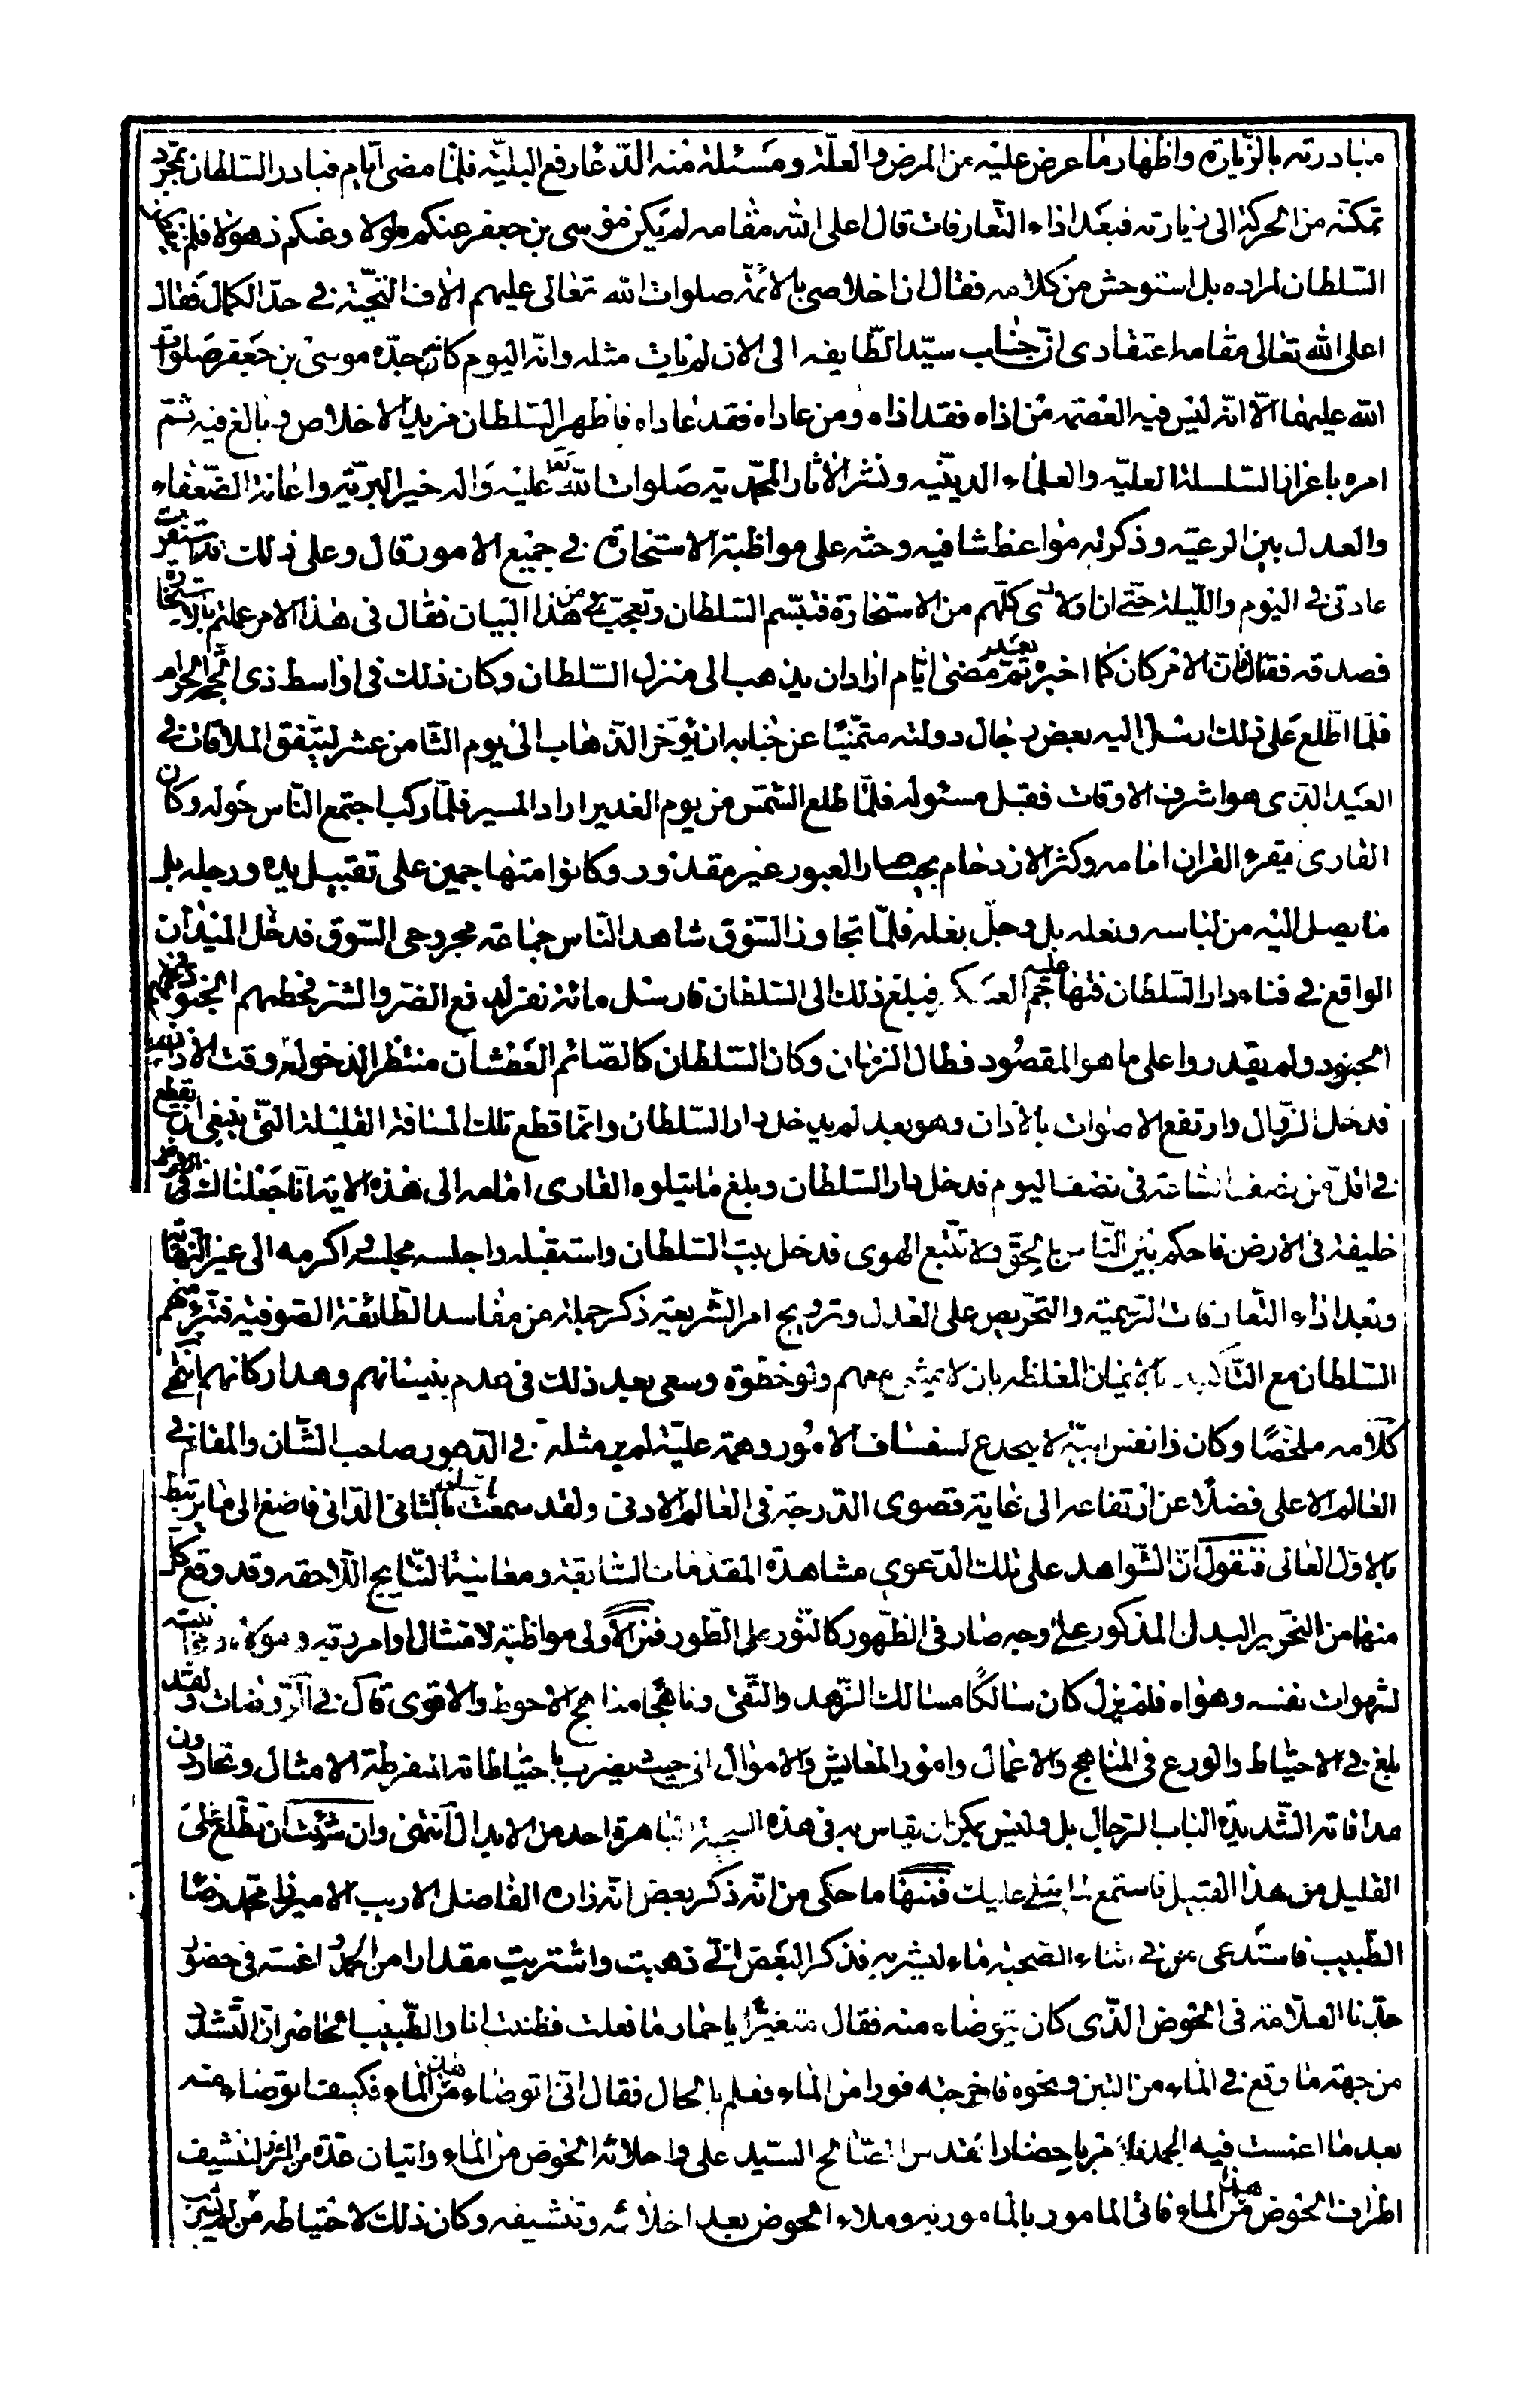 مبادرته بالزيارة واظهار ما عرض عليه من المرض والعلة ومسئلة منه الدعا رفع البلية فلما مضى ايام فبادر السلطان بمجرد
تمكنه من الحركة الى زيارته فبعد اداء التعارفات قال اعلى الله مقامه لم يكن موسى بن جعفر عنكم مولا وعنكم ذهولا فلم
السلطان لمراده بل استوحش من كلامه فقال ان اخلاصى بالائمة صلوات الله تعالى عليهم الاف التحية فى حد الكمال فقال
اعلى الله تعالى مقامه اعتقادى ان جناب سيد الطايفه الى الان لم يات مثله وانه اليوم كان جده موسى بن جعفر صلوات
الله عليهما الا انه ليس فيه العصمة من اذاه فقد اذاه ومن عاداه فقد عاداه فاظهر السلطان مزيد الاخلاص وبالغ فيه ثم
امره باعزاز السلسلة العلية والعلماء الدينيه ونشر الاثار المحمدية صلوات الله تعا عليه واله خير البرية واعانة الضعفاء
والعدل بين الرعيه وذكر له مواعظ شافيه وحثه على مواظبة الاستخارة فى جميع الامور قال وعلى ذلك قد استقرت
عادتى فى اليوم والليلة حتى ان اولادى كلهم من الاستخارة فتبسم السلطان وتعجب من هذا البيان فقال فى هذا الامر علتم بالاستخارة
فصدقه فقال فان الامر كان كما اخبر ثم بعد مضى ايام اراد ان يذهب الى منزل السلطان وكان ذلك فى اواسط ذى الحجة الحرام
فلما اطلع على ذلك ارسل اليه بعض رجال دولته متمنيا عن جنابه ان يؤخر الذهاب الى يوم الثامن عشر ليتفق الملاقات فى
العيد الذى هو اشرف الاوقات فقبل مسئوله فلما طلع الشمس من يوم الغدير اراد المسير فلما ركب اجتمع الناس حوله وكان
القارى يقرء القران امامه وكثر الازدحام بحيث صار العبور غير مقدور وكانوا متهاجمين على تقبيل يده ورجله بل
ما يصل اليه من لباسه ونعله بل رجل بغله فلما تجاوز السوق شاهد الناس جماعة مجروحى السوق فدخل الميدان
الواقع فى فناء دار السلطان فتهاجم عليه العسكر فبلغ ذلك الى السلطان فارسل مائة نفر لدفع الضر والشر فحطمهم الجنود
الجنود ولم يقدروا على ما هو المقصود فطال الزمان وكان السلطان كالصائم العطشان منتظر الدخوله وقت الاذان
فدخل الزوال وارتفع الاصوات بالاذان وهو بعد لم يدخل دار السلطان وانما قطع تلك المسافة القليلة التى ينبغى ان تقطع
فى اقل من نصف ساعة فى نصف اليوم فدخل دار السلطان وبلغ ما يتلوه القارى امامه الى هذه الاية انا جعلناك فى الارض
خليفة فى الارض فاحكم بين الناس بالحق ولا تتبع الهوى فدخل بيت السلطان واستقبله واجلسه مجلسه واكرمه الى غير النهاية
وبعد اداء التعارفات الرسمية والتحريص على العدل وترويج امر الشريعة ذكر جملة من مفاسد الطائفة الصوفية فتبرء منهم
السلطان مع التاكيد بالايمان المغلظه بان لا يمشى معهم ولو خطوة وسعى بعد ذلك فى هدم بنيانهم وهد اركانهم انتهى
كلامه ملخصا وكان ذا نفس ابية لا يخدع لسفساف الامور وهمة علية لم ير مثله فى الدهور صاحب الشان والمقام فى
العالم الاعلى فضلا عن ارتفاعه الى غاية قصوى الدرجة فى العالم الادنى ولقد سمعت ما يتعلق بالثانى الدانى فاصغ الى ما يرتبط
بالاول العالى فنقول ان الشواهد على تلك الدعوى مشاهدة المقدمات السابقة ومعاينة النتايج اللاحقه وقد وقع كل
منها من النحرير البدل المذكور على وجه صار فى الظهور كالنور على الطور فمن الاولى مواظبته لامتثال اوامر ربه
لشهوات نفسه وهواه فلم يزل كان سالكا مسالك الزهد والتقى وناهجا مناهج الاحوط والاقوى قال فى الروضات ولقد
بلغ فى الاحتياط والورع فى المناهج والاعمال وامور المعايش والاموال الى حيث يضرب باحتياطاته المفرطة الامثال وتحار دون
مداقاته الشديدة الباب الرجال بل وليس يمكن ان يقاس به فى هذه السجية الباهرة احد من الابدال انتهى وان شئت ان تطلع على
القليل من هذا القبيل فاستمع لما يتلى عليك فمنها ما حكى من انه ذكر بعض انه زاره الفاضل الاريب الاميرزا محمد رضا
الطبيب فاستدعى منى فى اثناء الصحبة ماء ليشربه فذكر البعض انى ذهبت واشتريت مقدارا من الجمد اغسته فى حضور
جدنا العلامة فى الحوض الذى كان يتوضاء منه فقال متغيرا يا حمار ما فعلت فظننت انا والطبيب الحاضر ان التشدد
من جهة ما وقع فى الماء من التبن ونحوه فاخرجته فورا من الماء فعلم بالحال فقال انى اتوضاء من هذا الماء فكيف اتوضاء منه
بعد ما اغست فيه الجمد فامر باحضار المقدس الصالح السيد على واخلائه الحوض من الماء واتيان عدة من الكر لتنشيف
اطراف الحوض من هذا الماء فاتى المامور بالمامور به وملاء الحوض بعد اخلائه وتنشيفه وكان ذلك لاحتياطه من